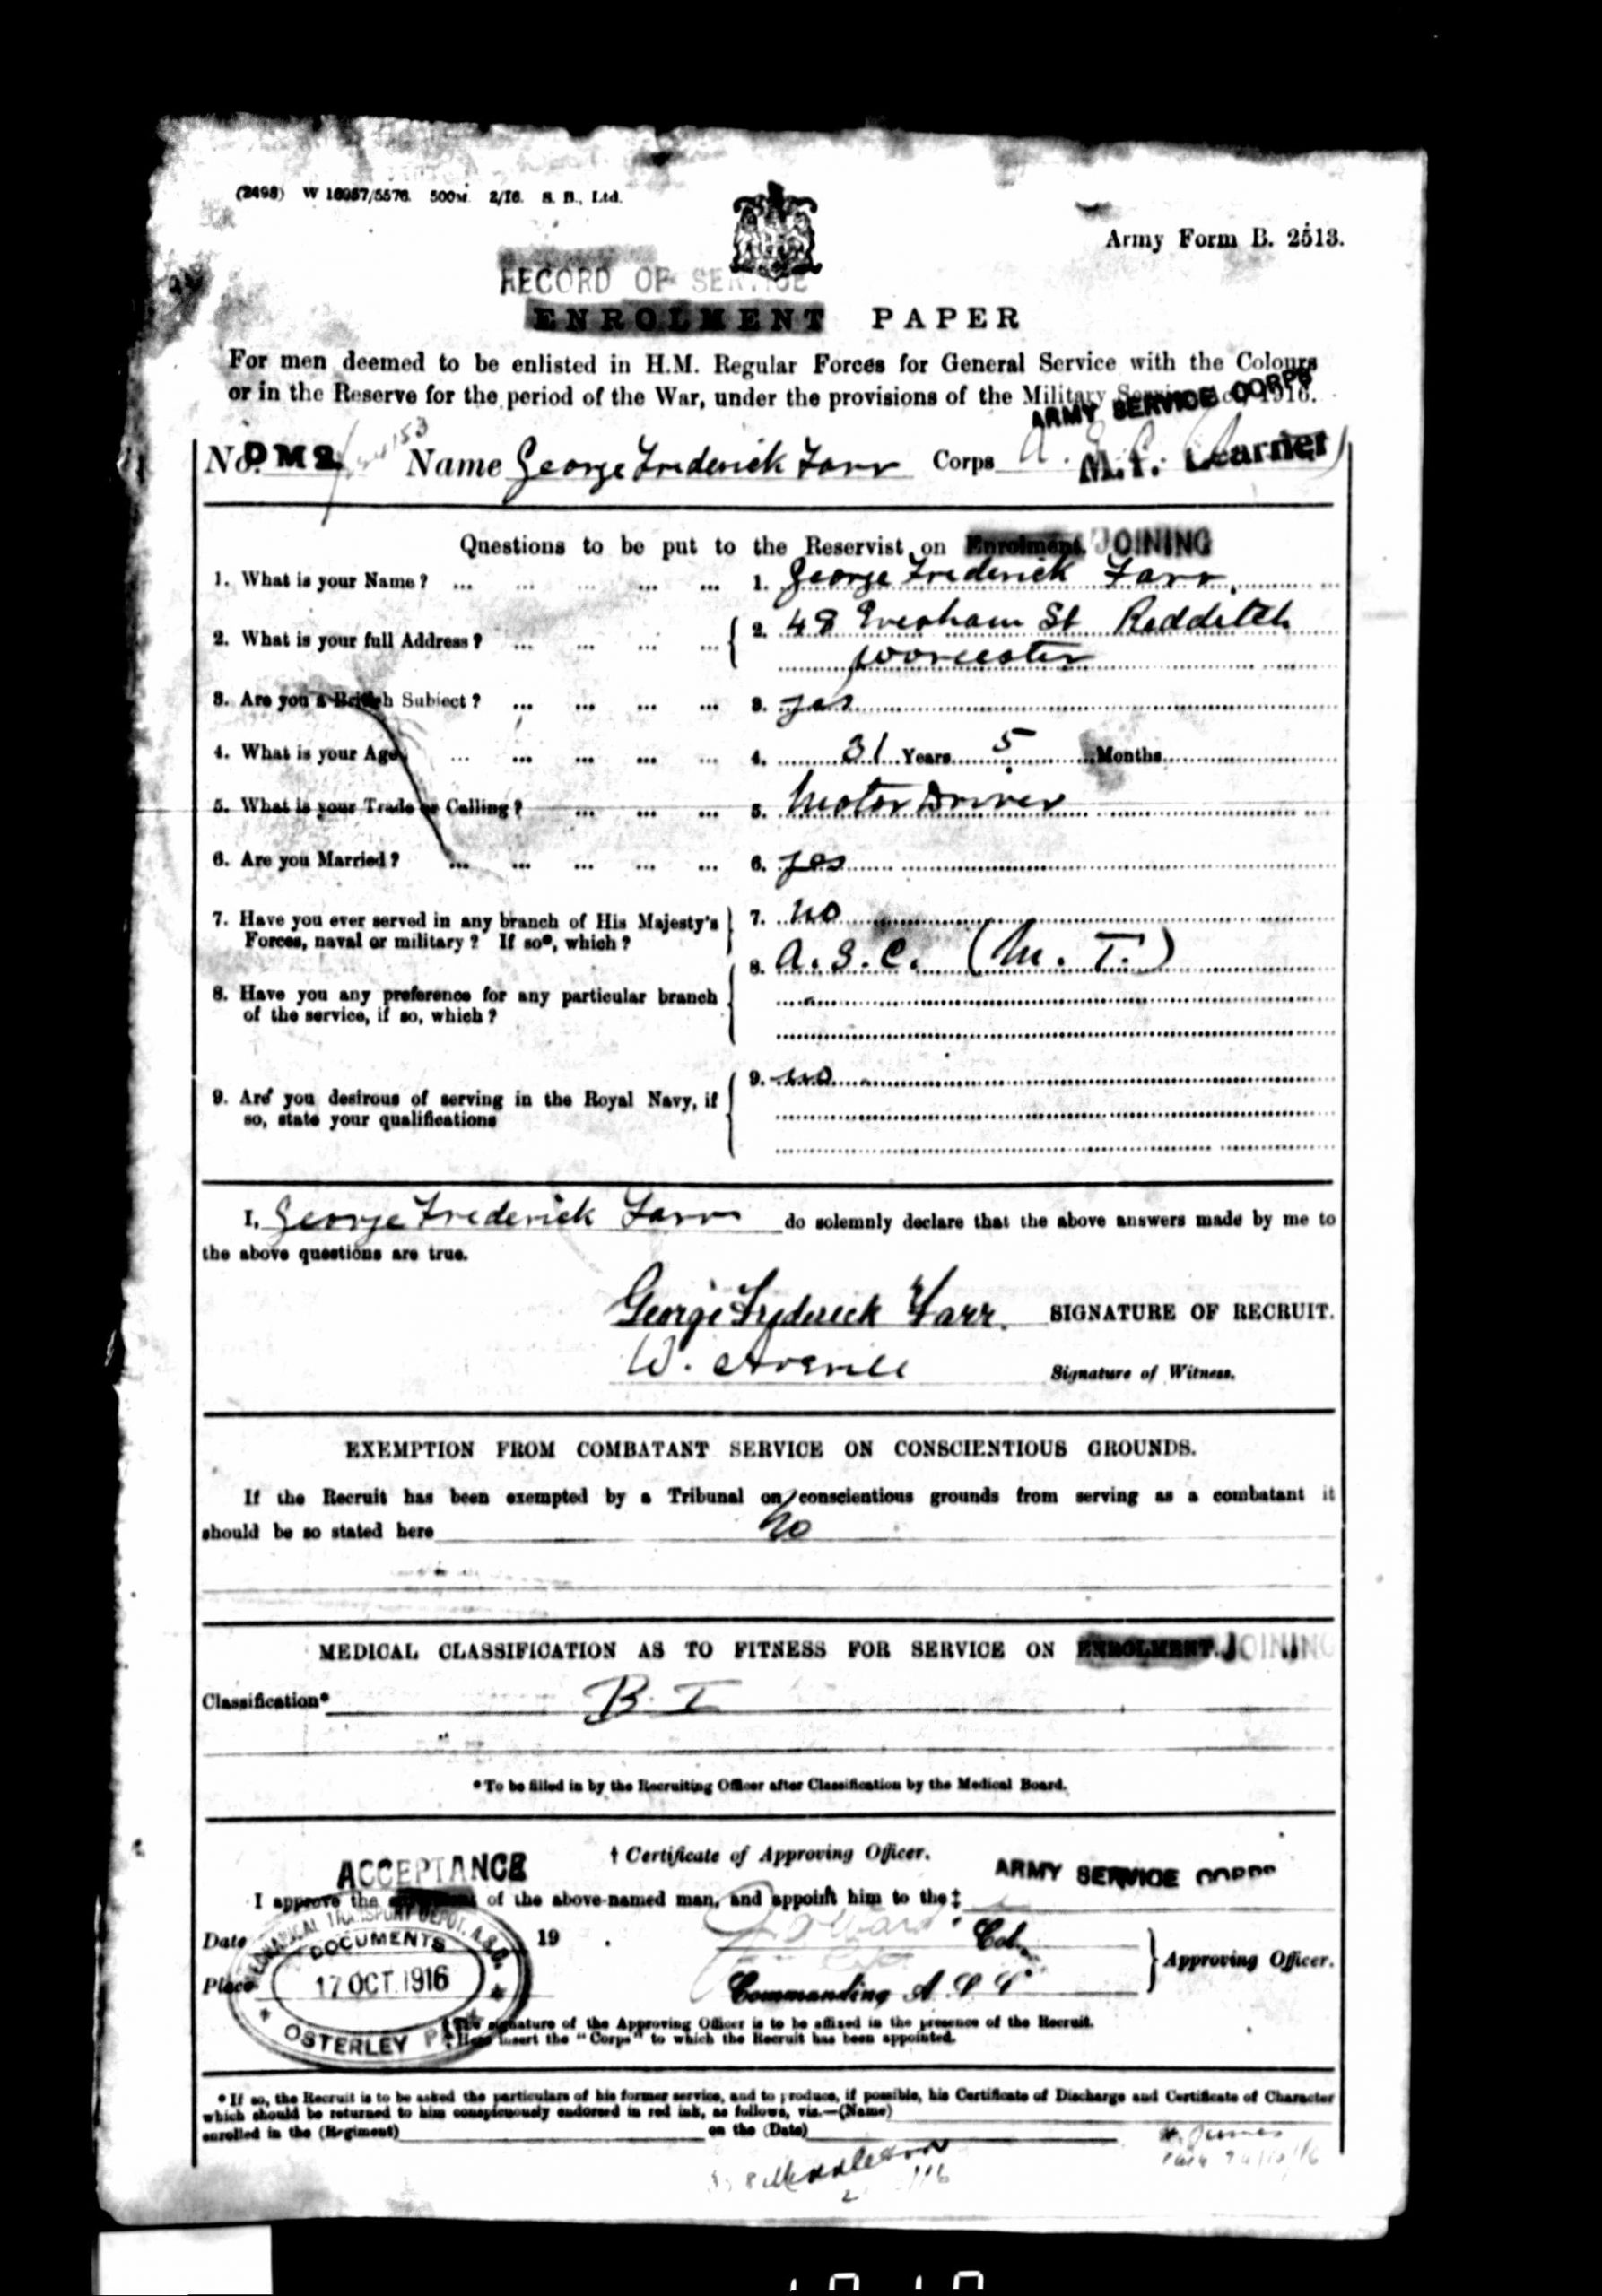 (2498) W 16957/5576. 500M. 2/16. S. B., Ltd.
Army Form B. 2513.
RECORD OF SERVICE
ENROLMENT PAPER
For men deemed to be enlisted in H.M. Regular Forces for General Service with the Colours
or in the Reserve for the period of the War, under the provisions of the Military Service Act, 1916.
ARMY SERVICE CORPS
No. DM2 Name George Frederick Farr Corps
M.T. Learner
Questions to be put to the Reservist on Enrolment. JOINING
1. What is your Name? ... ... ... ... ... 1. George Frederick Farr
2. What is your full Address? ... ... ... ... 2. 48 Evesham St Redditch
Worcester
3. Are you a British Subject? ... ... ... ... 3. yes
4. What is your Age? ... ... ... ... ... 4. 31 Years 5 Months
5. What is your Trade or Calling? ... ... ... 5. Motor Driver
6. Are you Married? ... ... ... ... ... 6. yes
7. Have you ever served in any branch of His Majesty's 7. no
Forces, naval or military? If so*, which?
8. A. S. C. (M. T.)
8. Have you any preference for any particular branch
of the service, if so, which?
9. no
9. Are you desirous of serving in the Royal Navy, if
so, state your qualifications
I, George Frederick Farr do solemnly declare that the above answers made by me to
the above questions are true.
George Frederick Farr. SIGNATURE OF RECRUIT.
W. Averill Signature of Witness.
EXEMPTION FROM COMBATANT SERVICE ON CONSCIENTIOUS GROUNDS.
If the Recruit has been exempted by a Tribunal on conscientious grounds from serving as a combatant it
should be so stated here No
MEDICAL CLASSIFICATION AS TO FITNESS FOR SERVICE ON ENROLMENT. JOINING
Classification* B. I
*To be filled in by the Recruiting Officer after Classification by the Medical Board.
ACCEPTANCE
† Certificate of Approving Officer.
ARMY SERVICE CORPS
I approve the of the above-named man, and appoint him to the ‡
Date 19 . Col.
Place
Approving Officer.
Commanding A S C
MECHANICAL TRANSPORT DEPOT, A.S.C.
DOCUMENTS
17 OCT. 1916
OSTERLEY PARK
† The signature of the Approving Officer is to be affixed in the presence of the Recruit.
‡ Here insert the "Corps" to which the Recruit has been appointed.
* If so, the Recruit is to be asked the particulars of his former service, and to produce, if possible, his Certificate of Discharge and Certificate of Character
which should be returned to him conspicuously endorsed in red ink, as follows, viz.—(Name)
enrolled in the (Regiment) on the (Date)